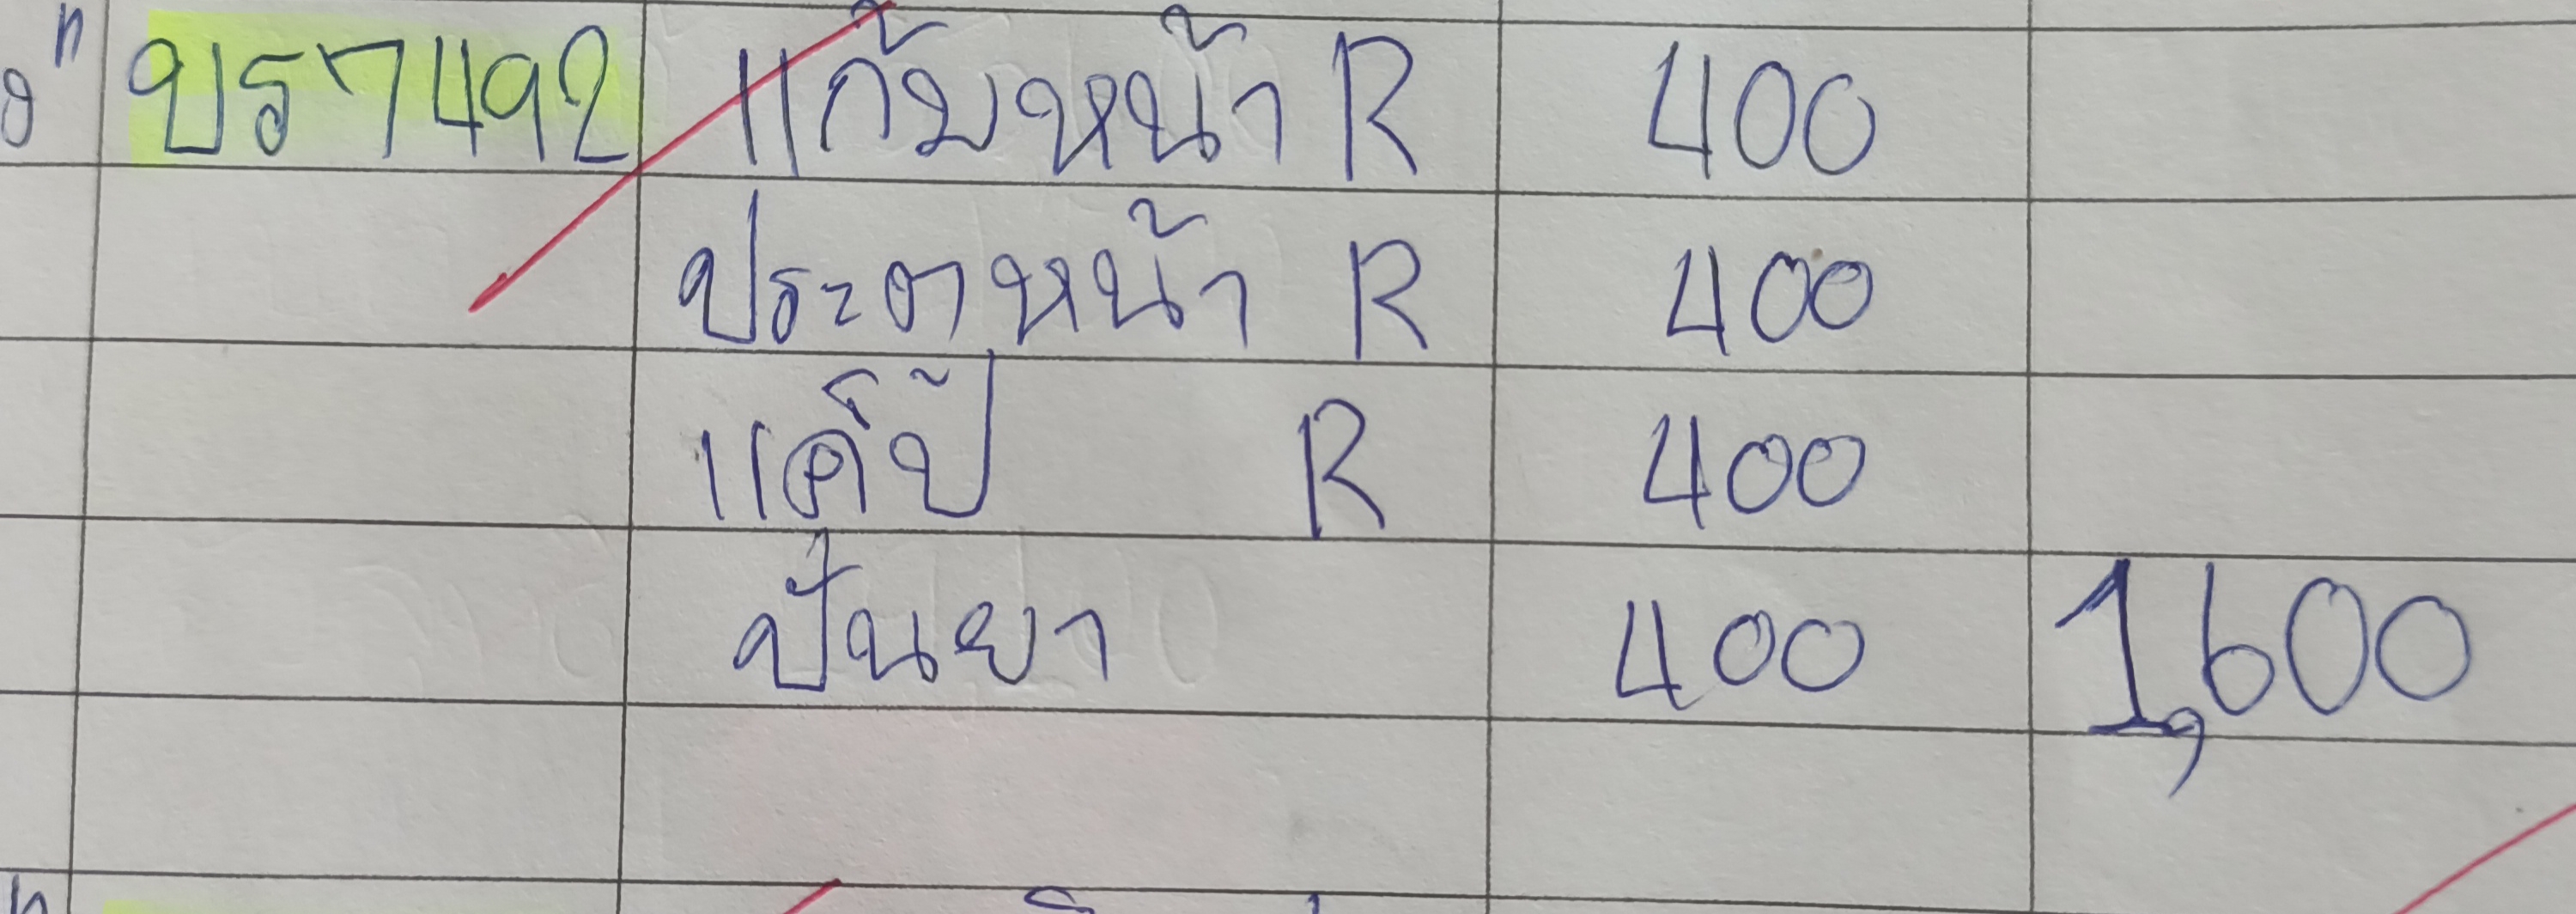 บร 7492 แก้มหน้า R 400
ประตหน้า R 400
แค็ป R 400
ปั่นยา 400 1,600